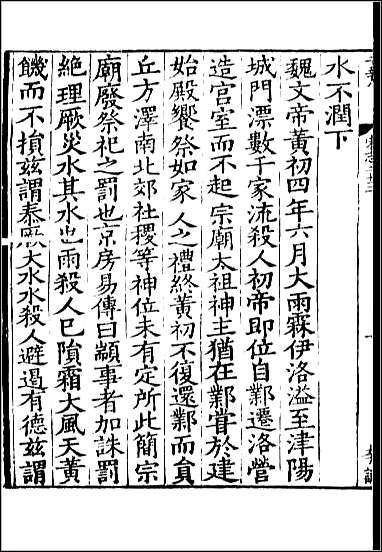 水不潤下
魏文帝黃初四年六月大雨霖伊洛溢至津陽
城門漂數千家流殺人初帝即位自鄴遷洛營
造宮室而不起宗廟太祖神主猶在鄴甞於建
始殿饗祭如家人之禮終黃初不復還鄴而貟
丘方澤南北郊社稷等神位未有定所此簡宗
廟廢祭祀之罰也京房易傳曰顓事者加誅罰
絶理厥災水其水也雨殺人已隕霜大風天黃
饑而不損茲謂泰厥大水水殺人避遏有德茲謂